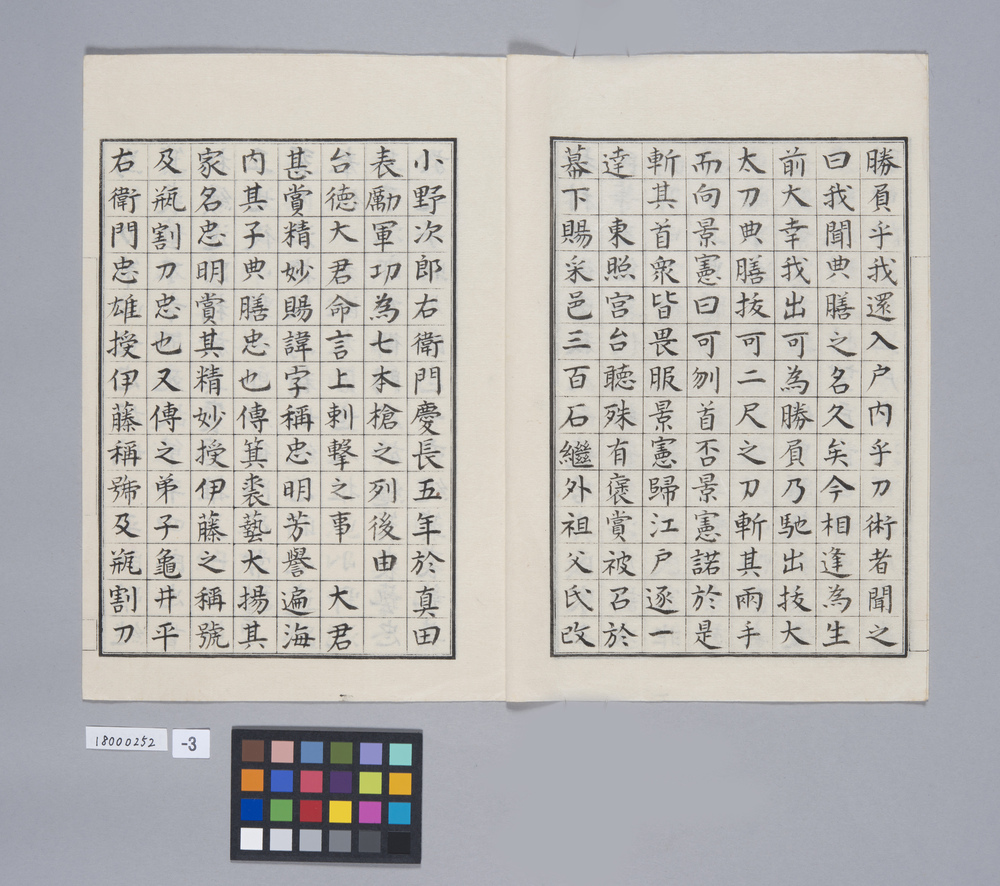 勝負乎我還入户内乎刀術者聞之
曰我聞典膳之名久矣今相逢為生
前大幸我出可為勝負乃馳出抜大
太刀典膳抜可二尺之刀斬其両手
而向景憲曰可刎首否景憲諾於是
斬其首衆皆畏服景憲歸江戸逐一
達　東照宮台聴殊有褒賞被召於
幕下賜采邑三百石繼外祖父氏改
小野次郎右衛門慶長五年於真田
表勵軍功為七本槍之列後由
台徳大君命言上刺撃之事　大君
甚賞精妙賜諱字稱忠明芳譽遍海
内其子典膳忠也傳箕裘藝大揚其
家名忠明賞其精妙授伊藤之稱號
及瓶割刀忠也又傳之弟子龜井平
右衛門忠雄授伊藤稱號及瓶割刀
18000252
-3